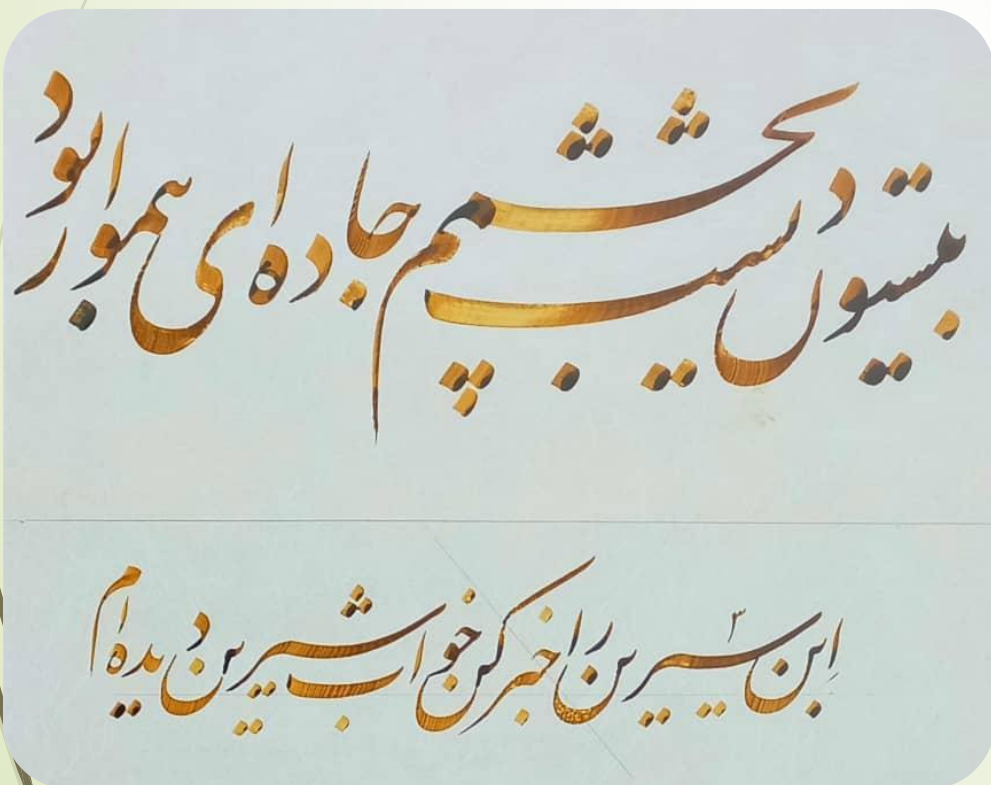 بیستون دیشب بچشمم جاده ای هموار بود
اِبن سیرین را خبر کن خواب شیرین دیده ام